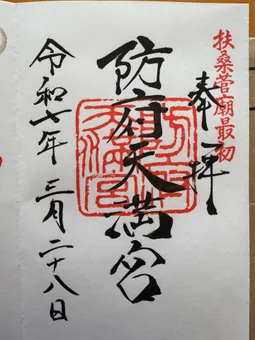 扶桑菅廟最初
奉拝
防府天満宮
令和七年三月二十八日